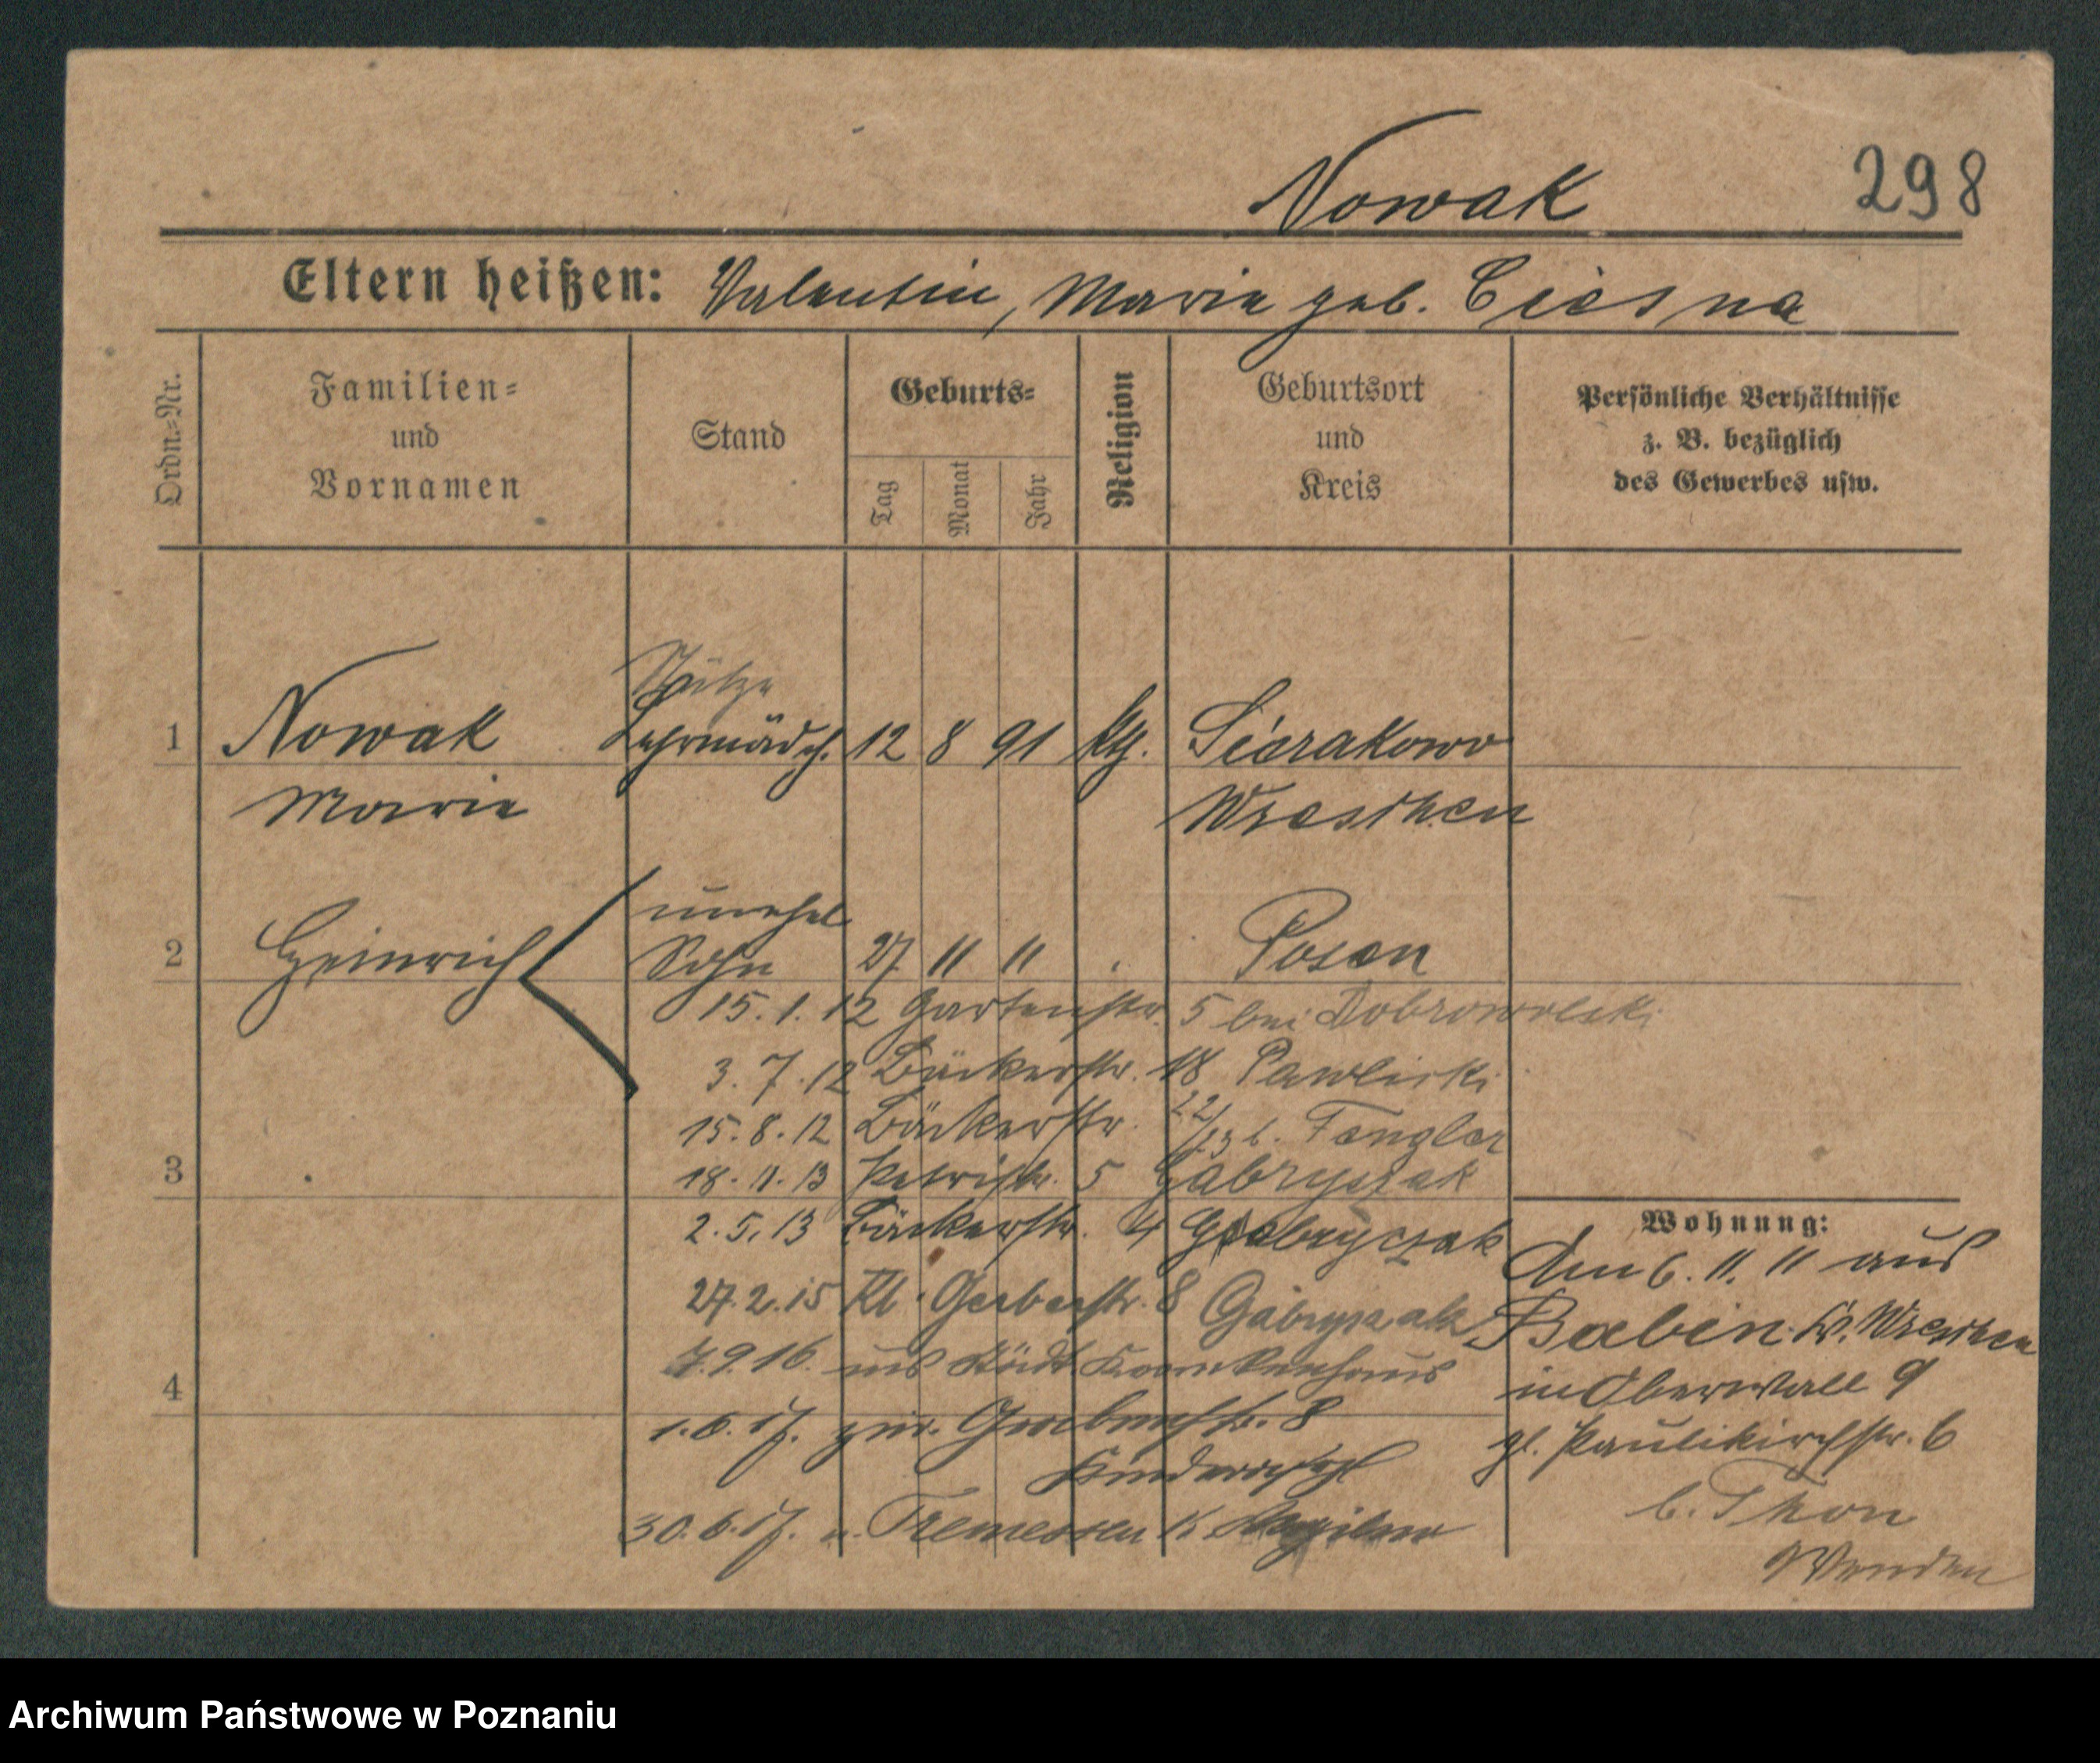 Nowak 298
Eltern heißen: Valentin, Marie geb. Ciesna
Ordn.-Nr.
Familien-
und
Vornamen
Stand
Geburts-
Tag
Monat
Jahr
Religion
Geburtsort
und
Kreis
Persönliche Verhältnisse
z. B. bezüglich
des Gewerbes usw.
Stütze
1 Nowak Lehrmädch. 12 8 91 kth. Sierakowo
Marie Wreschen
unehel
2 Heinrich Sohn 27 11 11 Posen
15.1.12 Gartenstr. 5 bei Dobrowolski
3.7.12 Bäckerstr. 18 Pawlicki
15.8.12 Bäckerstr. 22/23 b. Tengler
3
18.11.13 Petristr. 5 Gabryszak
2.5.13 Bäckerstr. 4 Gabryczak
27.2.15 Kl. Gerberstr. 8 Gabryszak
7.9.16. ins Städt. Krankenhaus
4
1.6.17. zur. Grabenstr. 8
30.6.17. n. Tremessen K.
Wohnung:
Am 6. 11. 11 aus
Babin Kr. Wreschen
in Oberwall 9
gl. Paulikirchstr. 6
b. Thon
Wenden
Archiwum Państwowe w Poznaniu